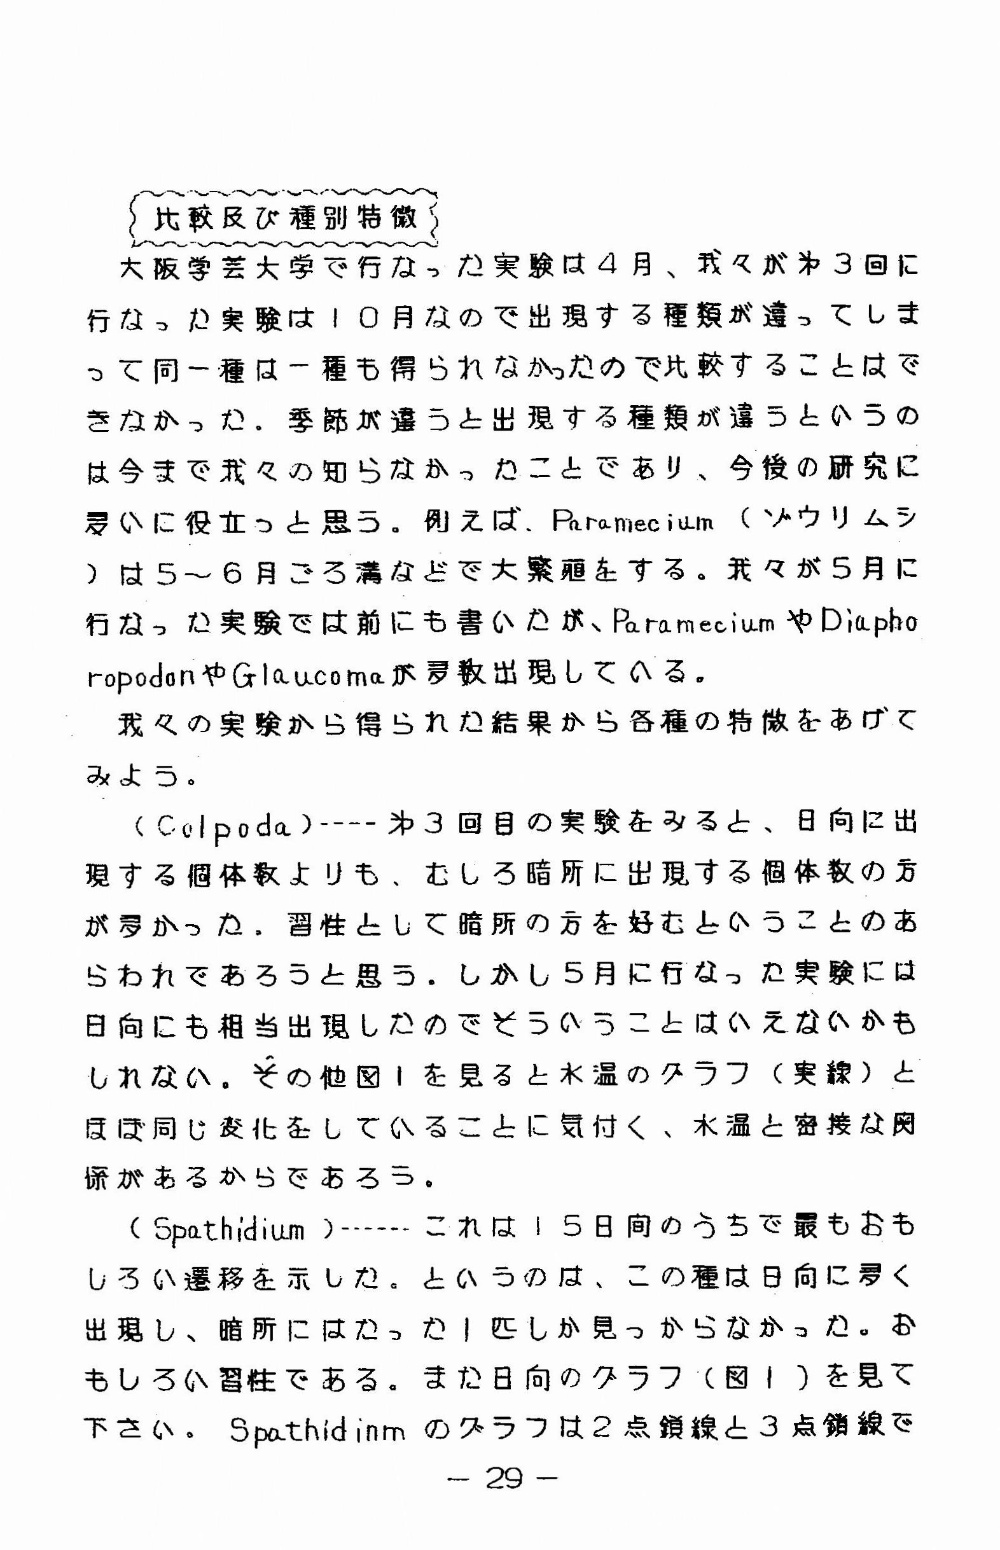 比較及び種別特徴
大阪学芸大学で行なった実験は4月、我々が才3回に
行なった実験は10月なので出現する種類が違ってしま
って同一種は一種も得られなかったので比較することはで
きなかった。季節が違うと出現する種類が違うというの
は今まで我々の知らなかったことであり、今後の研究に
多いに役立つと思う。例えば、Paramecium(ゾウリムシ
)は5〜6月ごろ溝などで大繁殖をする。我々が5月に
行なった実験では前にも書いたが、ParameciumやDiapho
ropodonやGlaucomaが多数出現している。
我々の実験から得られた結果から各種の特徴をあげて
みよう。
(Colpoda)----才3回目の実験をみると、日向に出
現する個体数よりも、むしろ暗所に出現する個体数の方
が多かった。習性として暗所の方を好むということのあ
らわれであろうと思う。しかし5月に行なった実験には
日向にも相当出現したのでそういうことはいえないかも
しれない。その他図1を見ると水温のグラフ(実線)と
ほぼ同じ変化をしていることに気付く、水温と密接な関
係があるからであろう。
(Spathidium)------これは15日間のうちで最もおも
しろい遷移を示した。というのは、この種は日向に多く
出現し、暗所にはたった1匹しか見つからなかった。お
もしろい習性である。また日向のグラフ(図1)を見て
下さい。Spathidinmのグラフは2点鎖線と3点鎖線で
— 29 —